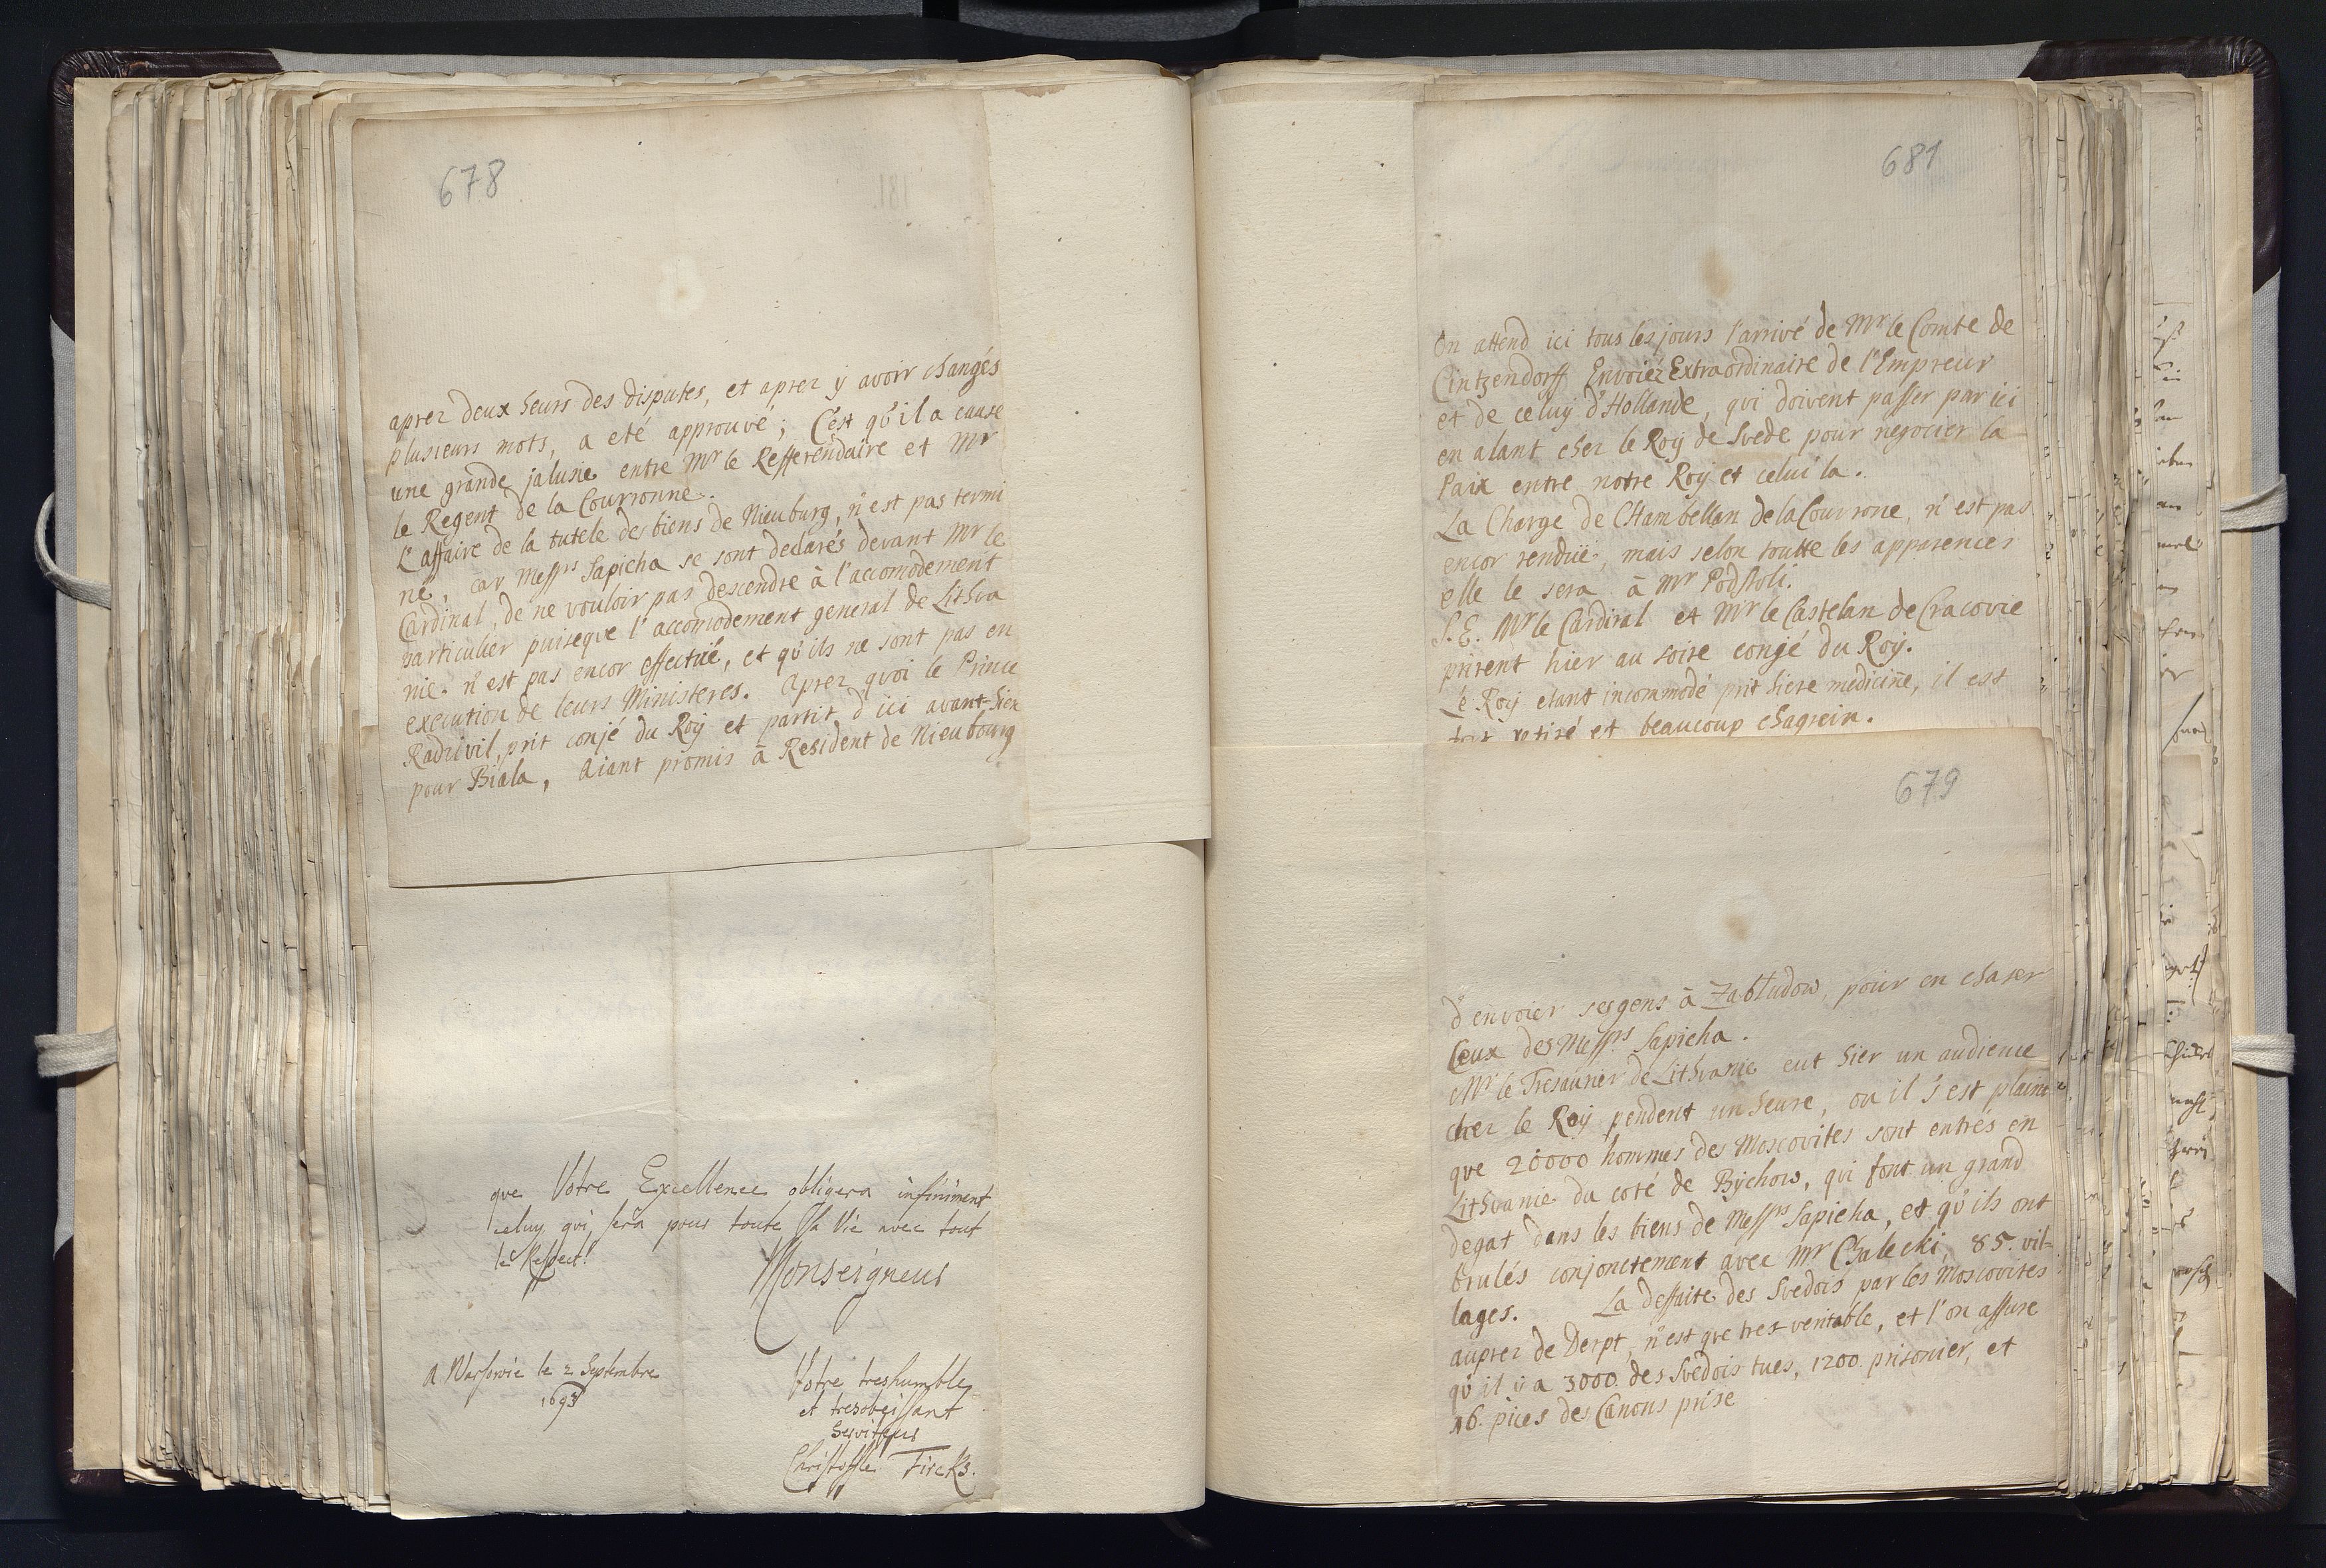 678
aprez deux heurs des disputes, et aprez ÿ avoir changés
plusieurs mots, a eté approuvé; C'est qu'il a cause
une grande jalusie entre Mr le Refferendaire et Mr
le Regent de la Courronne.
L'affaire de la tutele des biens de Nieuburg, n'est pas termi
né, car Messrs Sapieha se sont declarés devant Mr le
Cardinal, de ne vouloir pas descendre à l'accomodement
particulier puiseque l'accomodement general de Lithva
nie. n'est pas encor effectué, et qu'ils ne sont pas en
execution de leurs Ministeres. Aprez quoi le Prince
Radzivil, prit conjé du Roÿ et partit d'ici avant-hier
pour Biala, Aiant promis à Resident de Nieubourg
que Votre Excellence obligera infiniment
celuy qui sera pour toute sa Vie avec tout
le Respect!
Monseigneur
A Warsovie le 2 Septembre
1693
Votre treshumble
et tresobeissant
Serviteur
Christoffle Fircks.
681
On attend ici tous les jours l'arrivé de Mr le Comte de
Cintzendorff Envoiéz Extraordinaire de l'Empreur
et de celuÿ d'Hollande, qui doivent passer par ici
en alant chez le Roÿ de Svede pour negocier la
Paix entre notre Roÿ et celui la.
La Charge de CHambellan de la Courrone, n'est pas
encor rendüe, mais selon toutte les apparences
elle le sera à Mr Podstoli.
S.E. Mr le Cardinal et Mr le Castelan de Cracovie
prirent hier au soire conjé du Roÿ.
Le Roÿ etant incommodé prit hiere medicine, il est
tout retiré et beaucoup chagrein.
679
d'envoier ses gens à Zabludow, pour en chaser
Ceux des Messrs Sapieha.
Mr le Tresaurier de Lithvanie eut hier un audience
chez le Roÿ pendent un heure, ou il s'est plaint
que 20000 hommes des Moscovites sont entrés en
Lithvanie du coté de Bÿchow, qui font un grand
degat dans les biens de Messrs Sapieha, et qu'ils ont
brulés conjonctement avec Mr Chalecki, 85. vil-
lages. La deffaite des Svedois par les Moscovites
auprez de Derpt, n'est que tres veritable, et l'on assure
qu'il ÿ a 3000. des Svedois tues, 1200. prisonier, et
16. pices des Canons prise